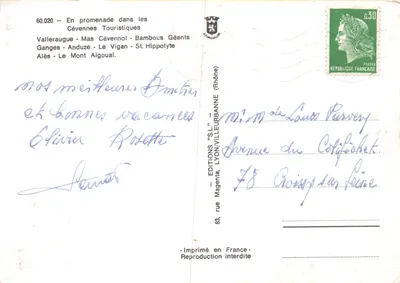 60.020 - En promenade dans les
Cévennes Touristiques
Valleraugue - Mas Cévennol - Bambous Géants
Ganges - Anduze - Le Vigan - St. Hippolyte
Alès - Le Mont Aigoual.
nos meilleures Amitiés
et bonnes vacances
Olivier Rosette
- EDITIONS "S.L." -
83, rue Magenta, LYON-VILLEURBANNE (Rhône)
0,30
POSTES
REPUBLIQUE FRANÇAISE
M. Mme Louis
Avenue du
78 Croissy sur Seine
-Imprimé en France-
Reproduction interdite